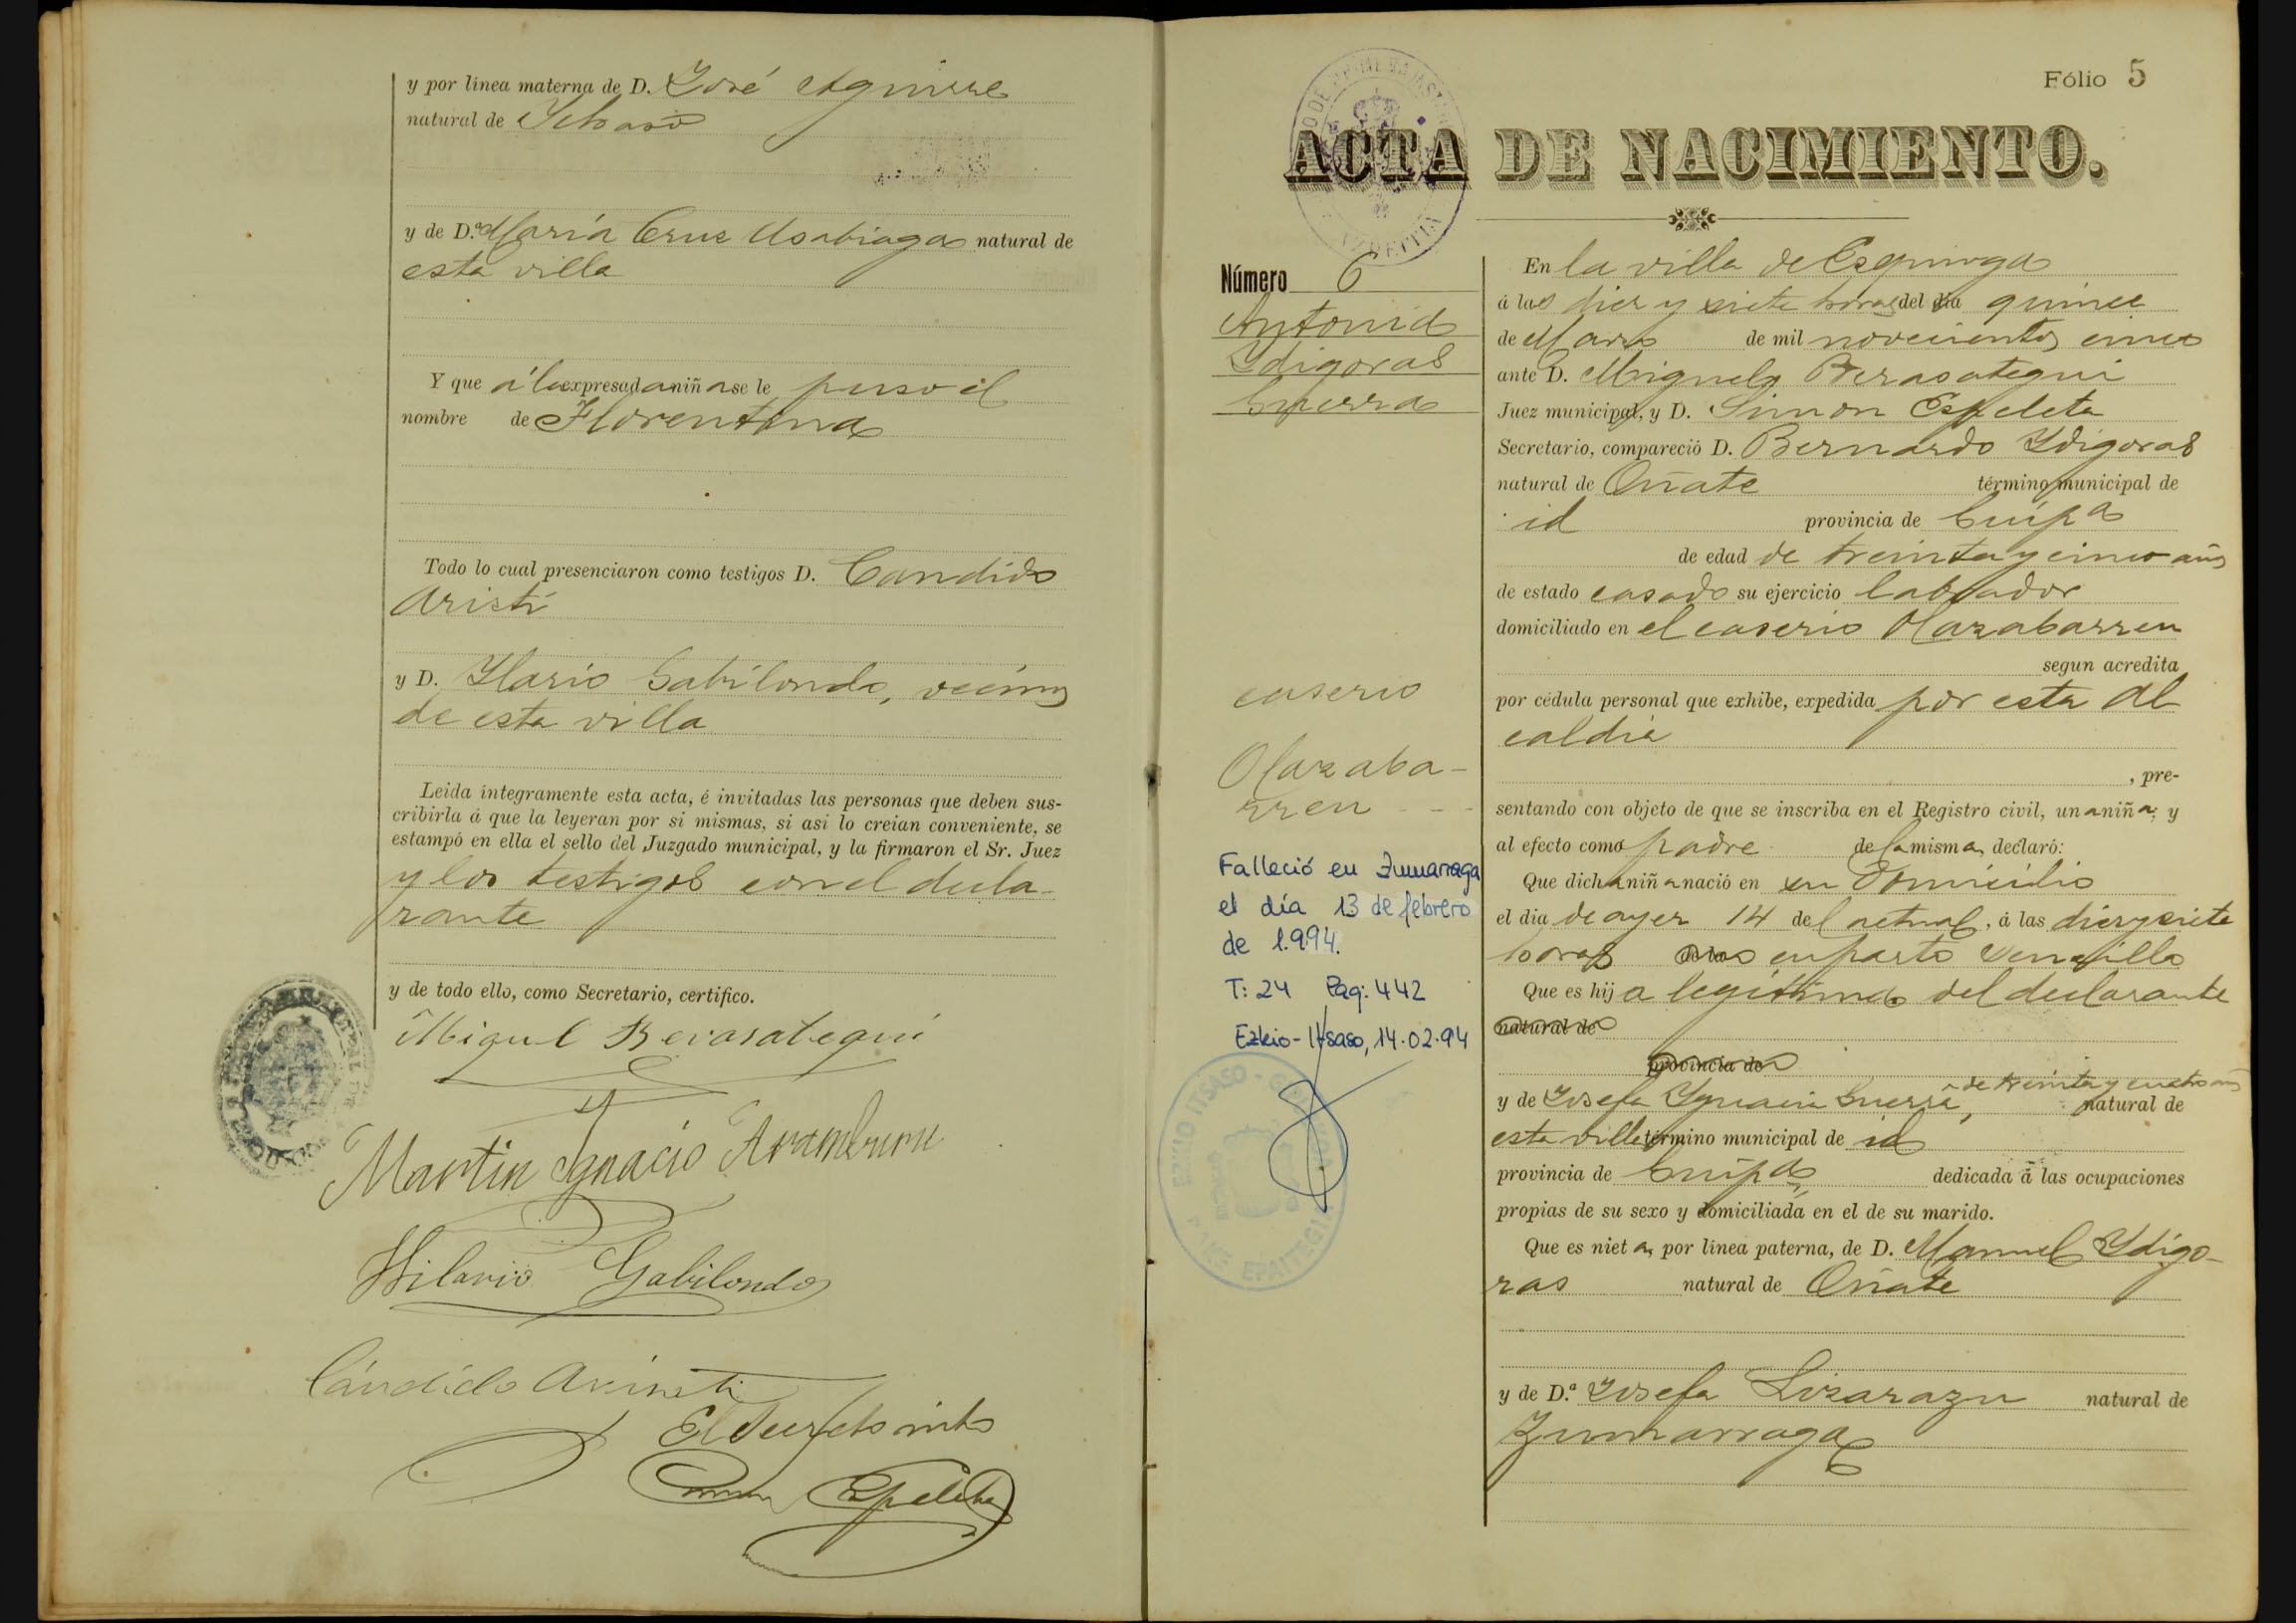 y por línea materna de D. José Aguirre
natural de Ichaso
y de D.ª María Cruz Usabiaga natural de
esta villa
Y que á la expresada niña se le puso el
nombre de Florentina
Todo lo cual presenciaron como testigos D. Candido
Aristi
y D. Ylario Gabilondo, vecinos
de esta villa
Leida íntegramente esta acta, é invitadas las personas que deben sus-
cribirla á que la leyeran por sí mismas, si así lo creian conveniente, se
estampó en ella el sello del Juzgado municipal, y la firmaron el Sr. Juez
y los testigos con el decla-
rante
y de todo ello, como Secretario, certifico.
Miguel Berasategui
Martin Ygnacio Aramburu
Hilario Gabilondo
Cándido Aristi
El Secretario
Simon Espeleta
Fólio 5
ACTA DE NACIMIENTO.
Número 6
Antonia
Ydigoras
Guerra
caserio
Olazaba-
rren - -
Falleció en Zumarraga
el día 13 de febrero
de 1.994.
T: 24 Pág: 442
Ezkio-Itsaso, 14.02.94
EZKIO ITSASO
En la villa de Ezquioga
á las diez y siete horas del dia quince
de Marzo de mil novecientos cinco
ante D. Miguel Berasategui
Juez municipal, y D. Simon Espeleta
Secretario, compareció D. Bernardo Ydigoras
natural de Oñate término municipal de
id provincia de Guipª
de edad de treinta y cinco años
de estado casado su ejercicio labrador
domiciliado en el caserio Olazabarren
segun acredita
por cédula personal que exhibe, expedida por esta Al
caldia
, pre-
sentando con objeto de que se inscriba en el Registro civil, una niña; y
al efecto como padre de la misma, declaró:
Que dicha niña nació en su domicilio
el dia de ayer 14 del actual, á las diez y siete
horas de la en parto sencillo
Que es hija legítima del declarante
natural de
provincia de
y de Josefa Ygnacia Guerra, de treinta y cuatro años natural de
esta villa término municipal de id
provincia de Guipª dedicada á las ocupaciones
propias de su sexo y domiciliada en el de su marido.
Que es nieta, por línea paterna, de D. Manuel Ydigo-
ras natural de Oñate
y de D.ª Josefa Lizarazu natural de
Zumarraga